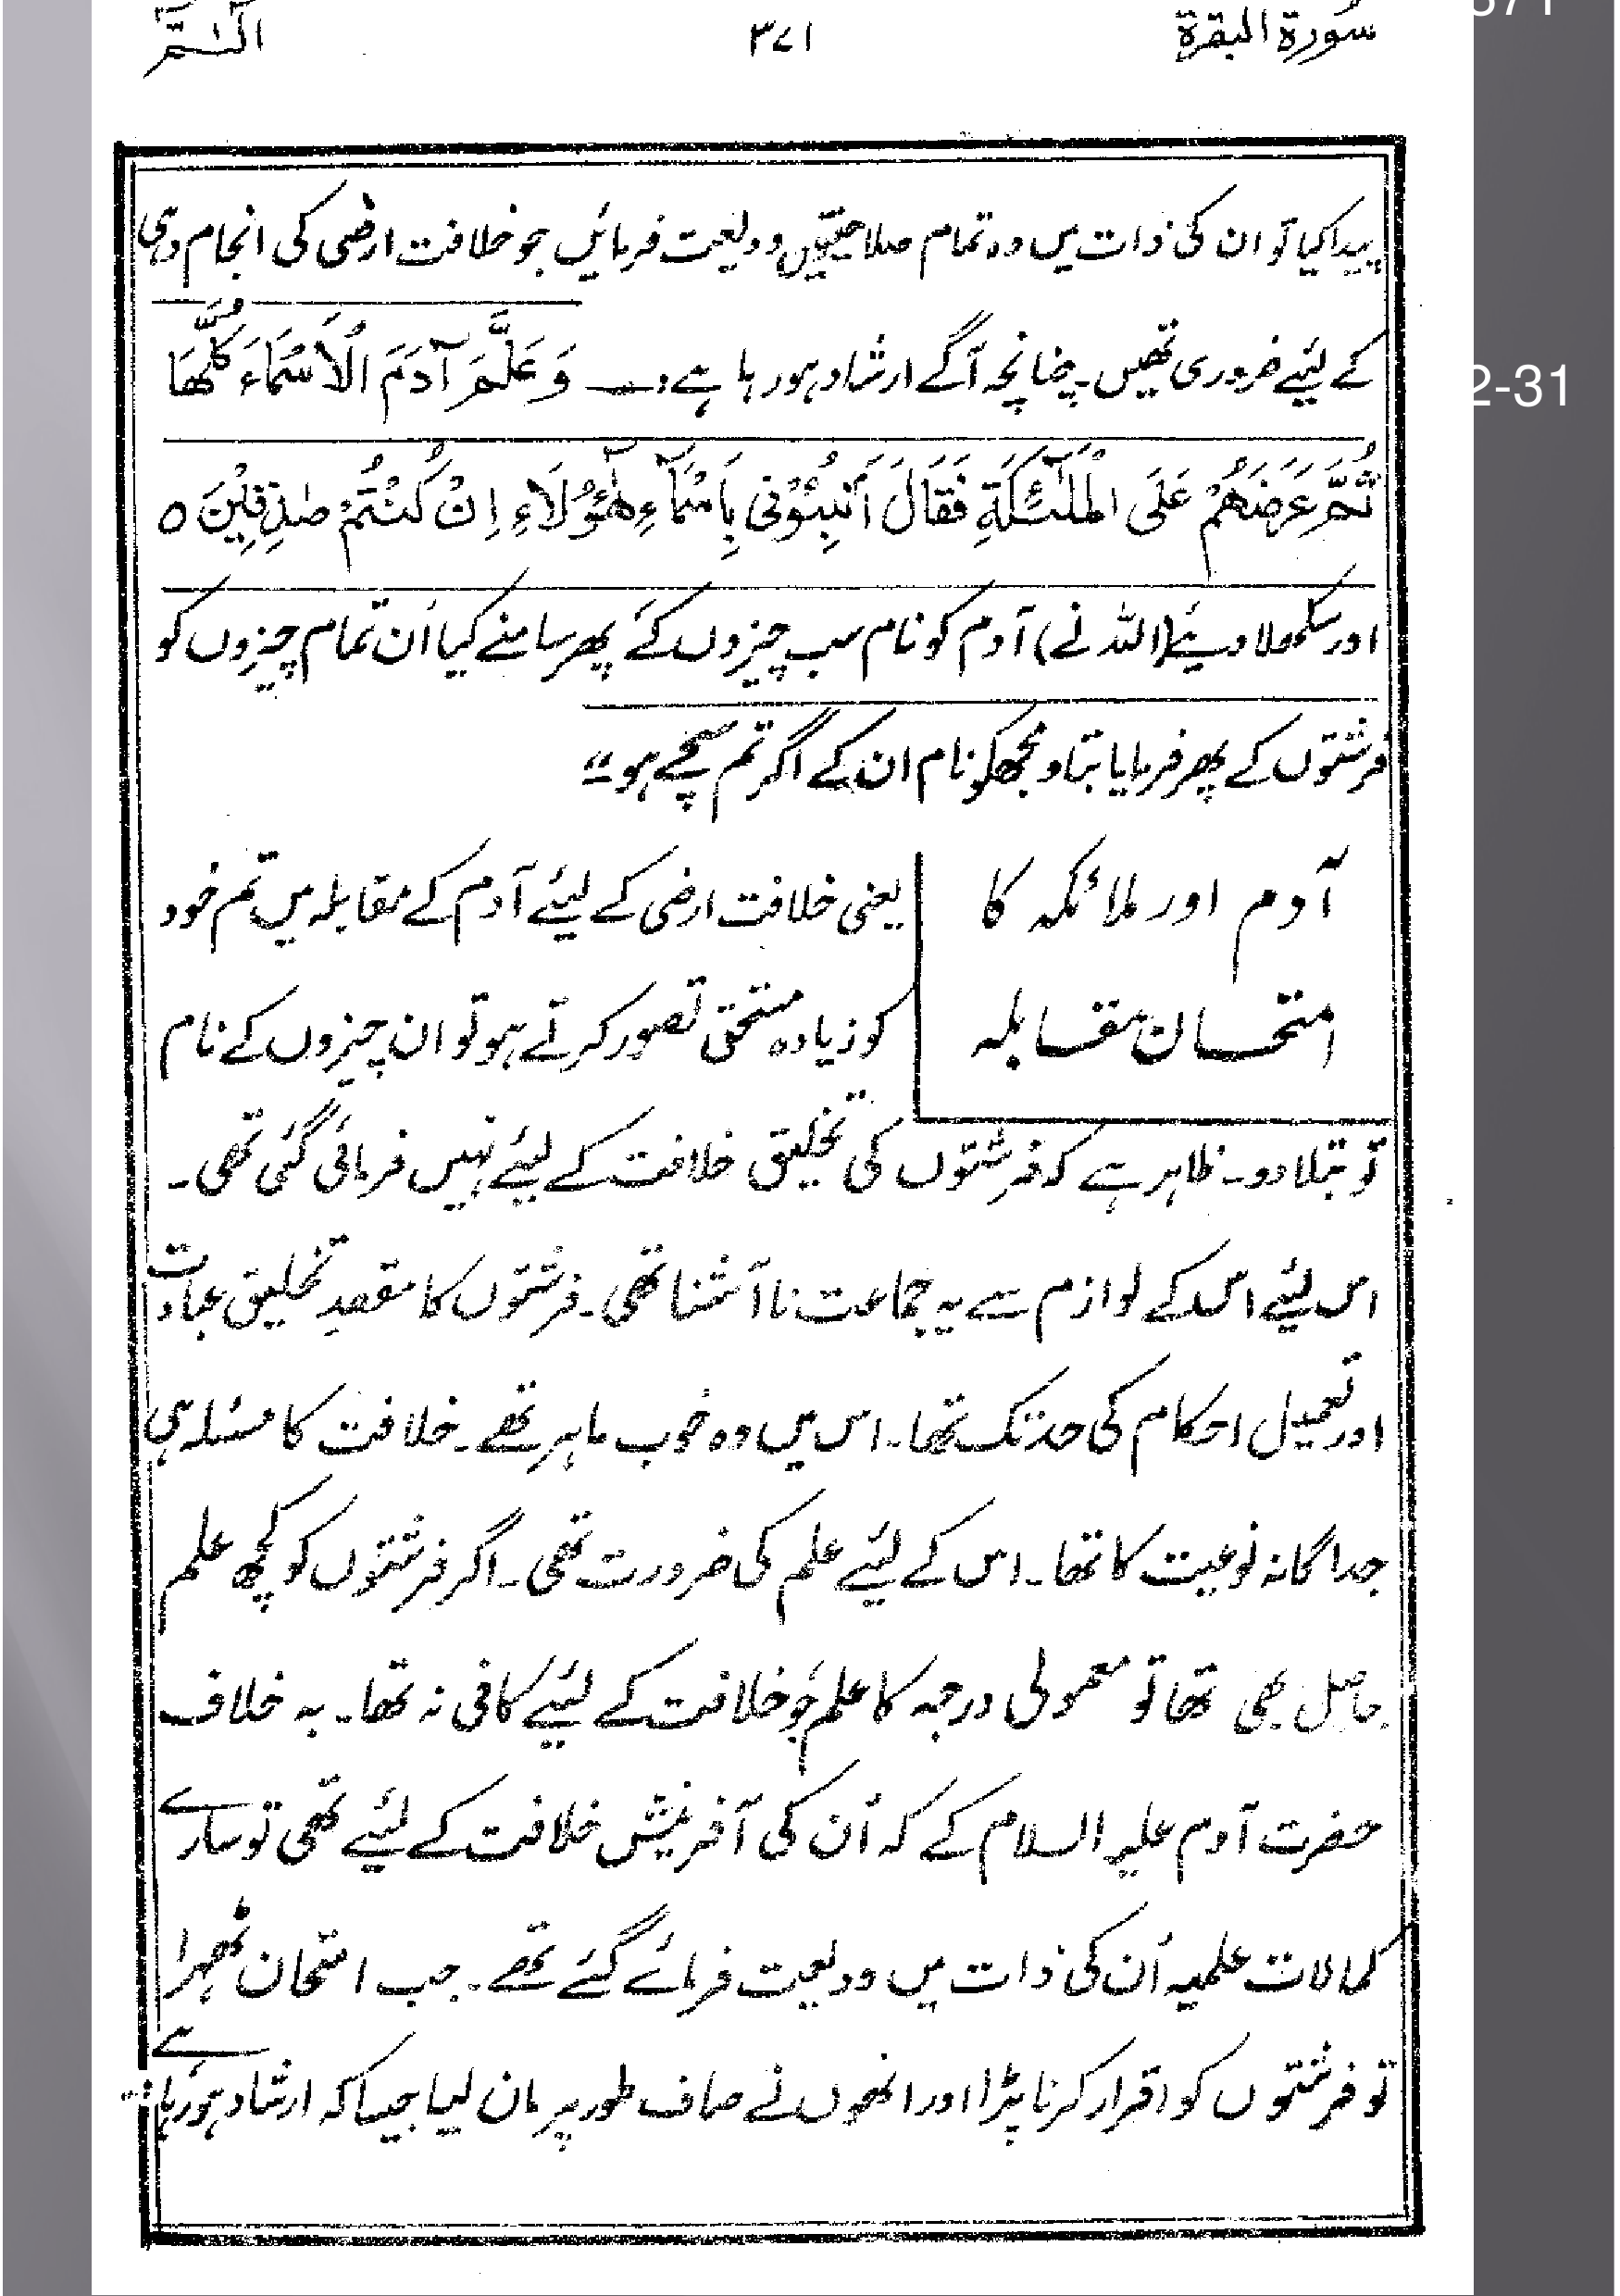 سُورة البقرة
٣٧١
الٓـمّٓ
پیدا کیا تو ان کی ذات میں وہ تمام صلاحیتیں ودیعت فرمائیں جو خلافت ارضی کی انجام دہی
کے لیئے ضروری تھیں۔ چنانچہ آگے ارشاد ہو رہا ہے :۔ وَعَلَّمَ آدَمَ الْاَسْمَاءَ کُلَّهَا
ثُمَّ عَرَضَهُمْ عَلَی الْمَلٰٓئِکَةِ فَقَالَ اَنْبِئُوْنِی بِاَسْمَآءِ هٰٓؤُلَاءِ اِنْ کُنْتُمْ صٰدِقِیْنَ ○
اور سکھلا دیئے (اللہ نے) آدم کو نام سب چیزوں کے پھر سامنے کیا اُن تمام چیزوں کو
فرشتوں کے پھر فرمایا بتاو مجھکو نام ان کے اگر تم سچے ہو"
آدم اور ملائکہ کا
امتحان مقابلہ
یعنی خلافت ارضی کے لیئے آدم کے مقابلہ میں تم خود
کو زیادہ مستحق تصور کرتے ہو تو ان چیزوں کے نام
تو بتلا دو۔ ظاہر ہے کہ فرشتوں کی تخلیق خلافت کے لیئے نہیں فرمائی گئی تھی۔
اس لیئے اس کے لوازم سے یہ جماعت نا آشنا تھی۔ فرشتوں کا مقصدِ تخلیق عبادت
اور تعمیل احکام کی حد تک تھا۔ اس میں وہ خوب ماہر تھے۔ خلافت کا مسئلہ ہی
جداگانہ نوعیت کا تھا۔ اس کے لیئے علم کی ضرورت تھی۔ اگر فرشتوں کو کچھ علم
حاصل بھی تھا تو معمولی درجہ کا علم جو خلافت کے لیئے کافی نہ تھا۔ بہ خلاف
حضرت آدم علیہ السلام کے کہ اُن کی آفرینش خلافت کے لیئے تھی تو سارے
کمالات علمیہ اُن کی ذات میں ودیعت فرمائے گئے تھے۔ جب امتحان ٹھہرا
تو فرشتوں کو اقرار کرنا پڑا اور انھوں نے صاف طور پر مان لیا جیسا کہ ارشاد ہو رہا ہے
371
2-31